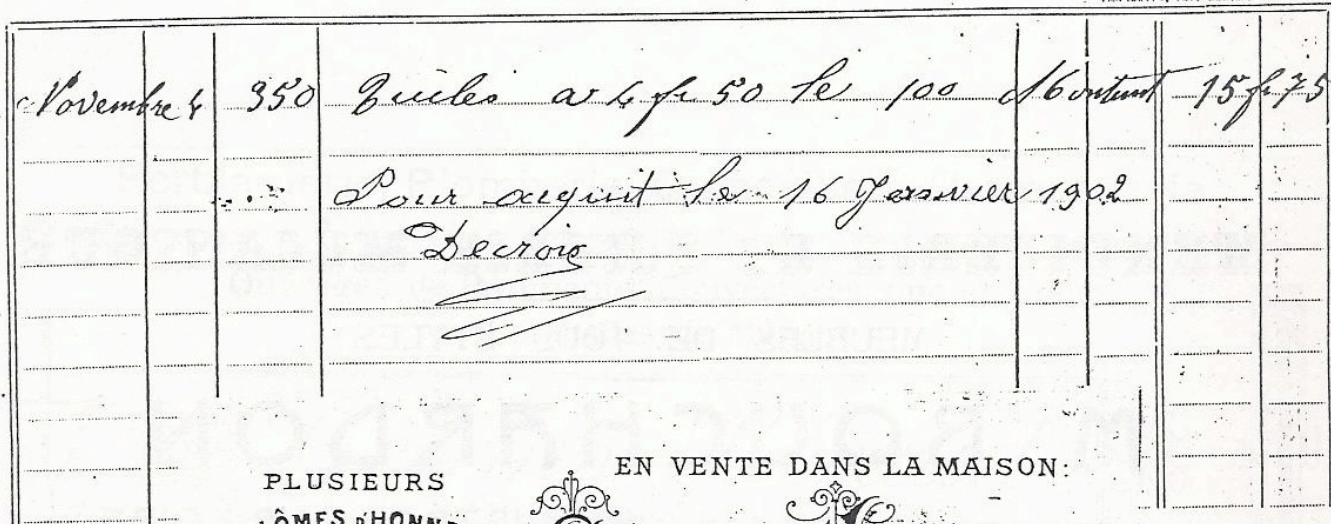 Novembre 4 350 Tuiles a 4 fr 50 le 100 Montant 15 fr 75
Pour acquit le 16 Janvier 1902
Decroix
PLUSIEURS
EN VENTE DANS LA MAISON: